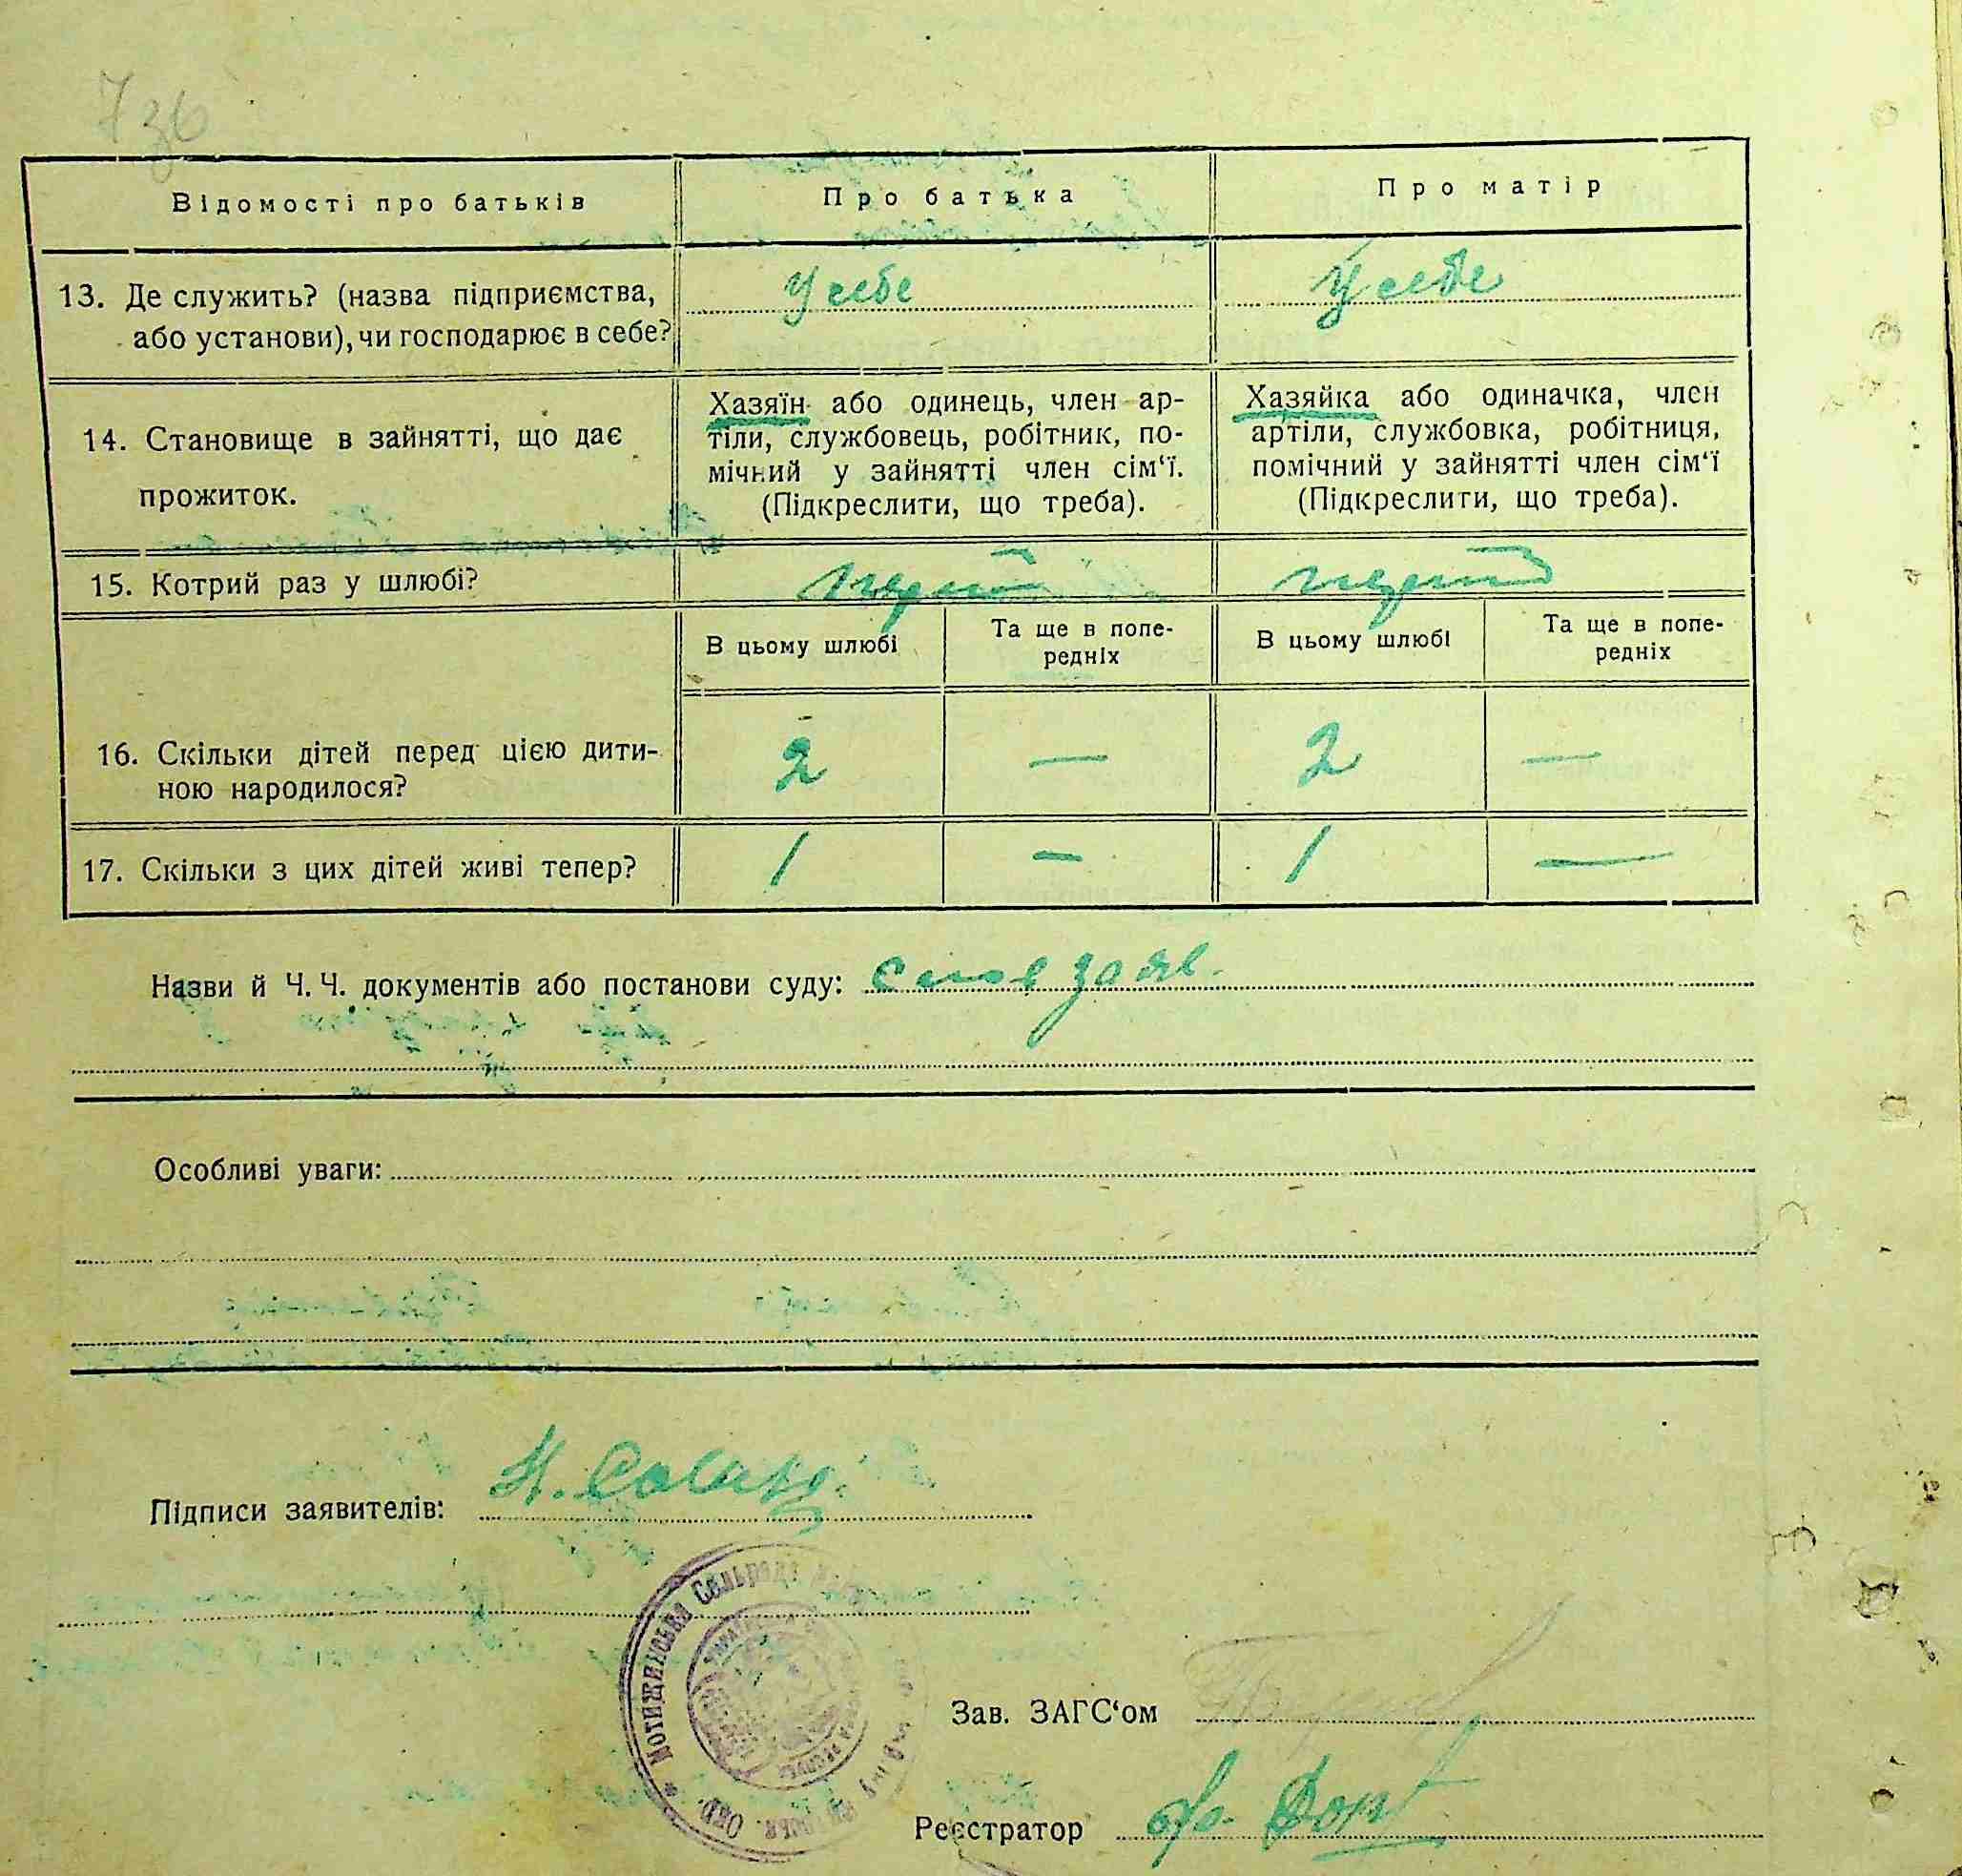 7зв
Відомості про батьків
Про батька
Про матір
13. Де служить? (назва підприємства,
або установи), чи господарює в себе?
У себе
У себе
14. Становище в зайнятті, що дає
прожиток.
Хазяїн або одинець, член ар-
тіли, службовець, робітник, по-
мічний у зайнятті член сім‘ї.
(Підкреслити, що треба).
Хазяйка або одиначка, член
артіли, службовка, робітниця,
помічний у зайнятті член сім‘ї
(Підкреслити, що треба).
15. Котрий раз у шлюбі?
В цьому шлюбі
Та ще в попе-
редніх
В цьому шлюбі
Та ще в попе-
редніх
16. Скільки дітей перед цією дити-
ною народилося?
2
—
2
—
17. Скільки з цих дітей живі тепер?
1
—
1
—
Назви й Ч. Ч. документів або постанови суду: заяв.
Особливі уваги:
Підписи заявителів:
Мотижинська Сельрада
Зав. ЗАГС‘ом
Реєстратор